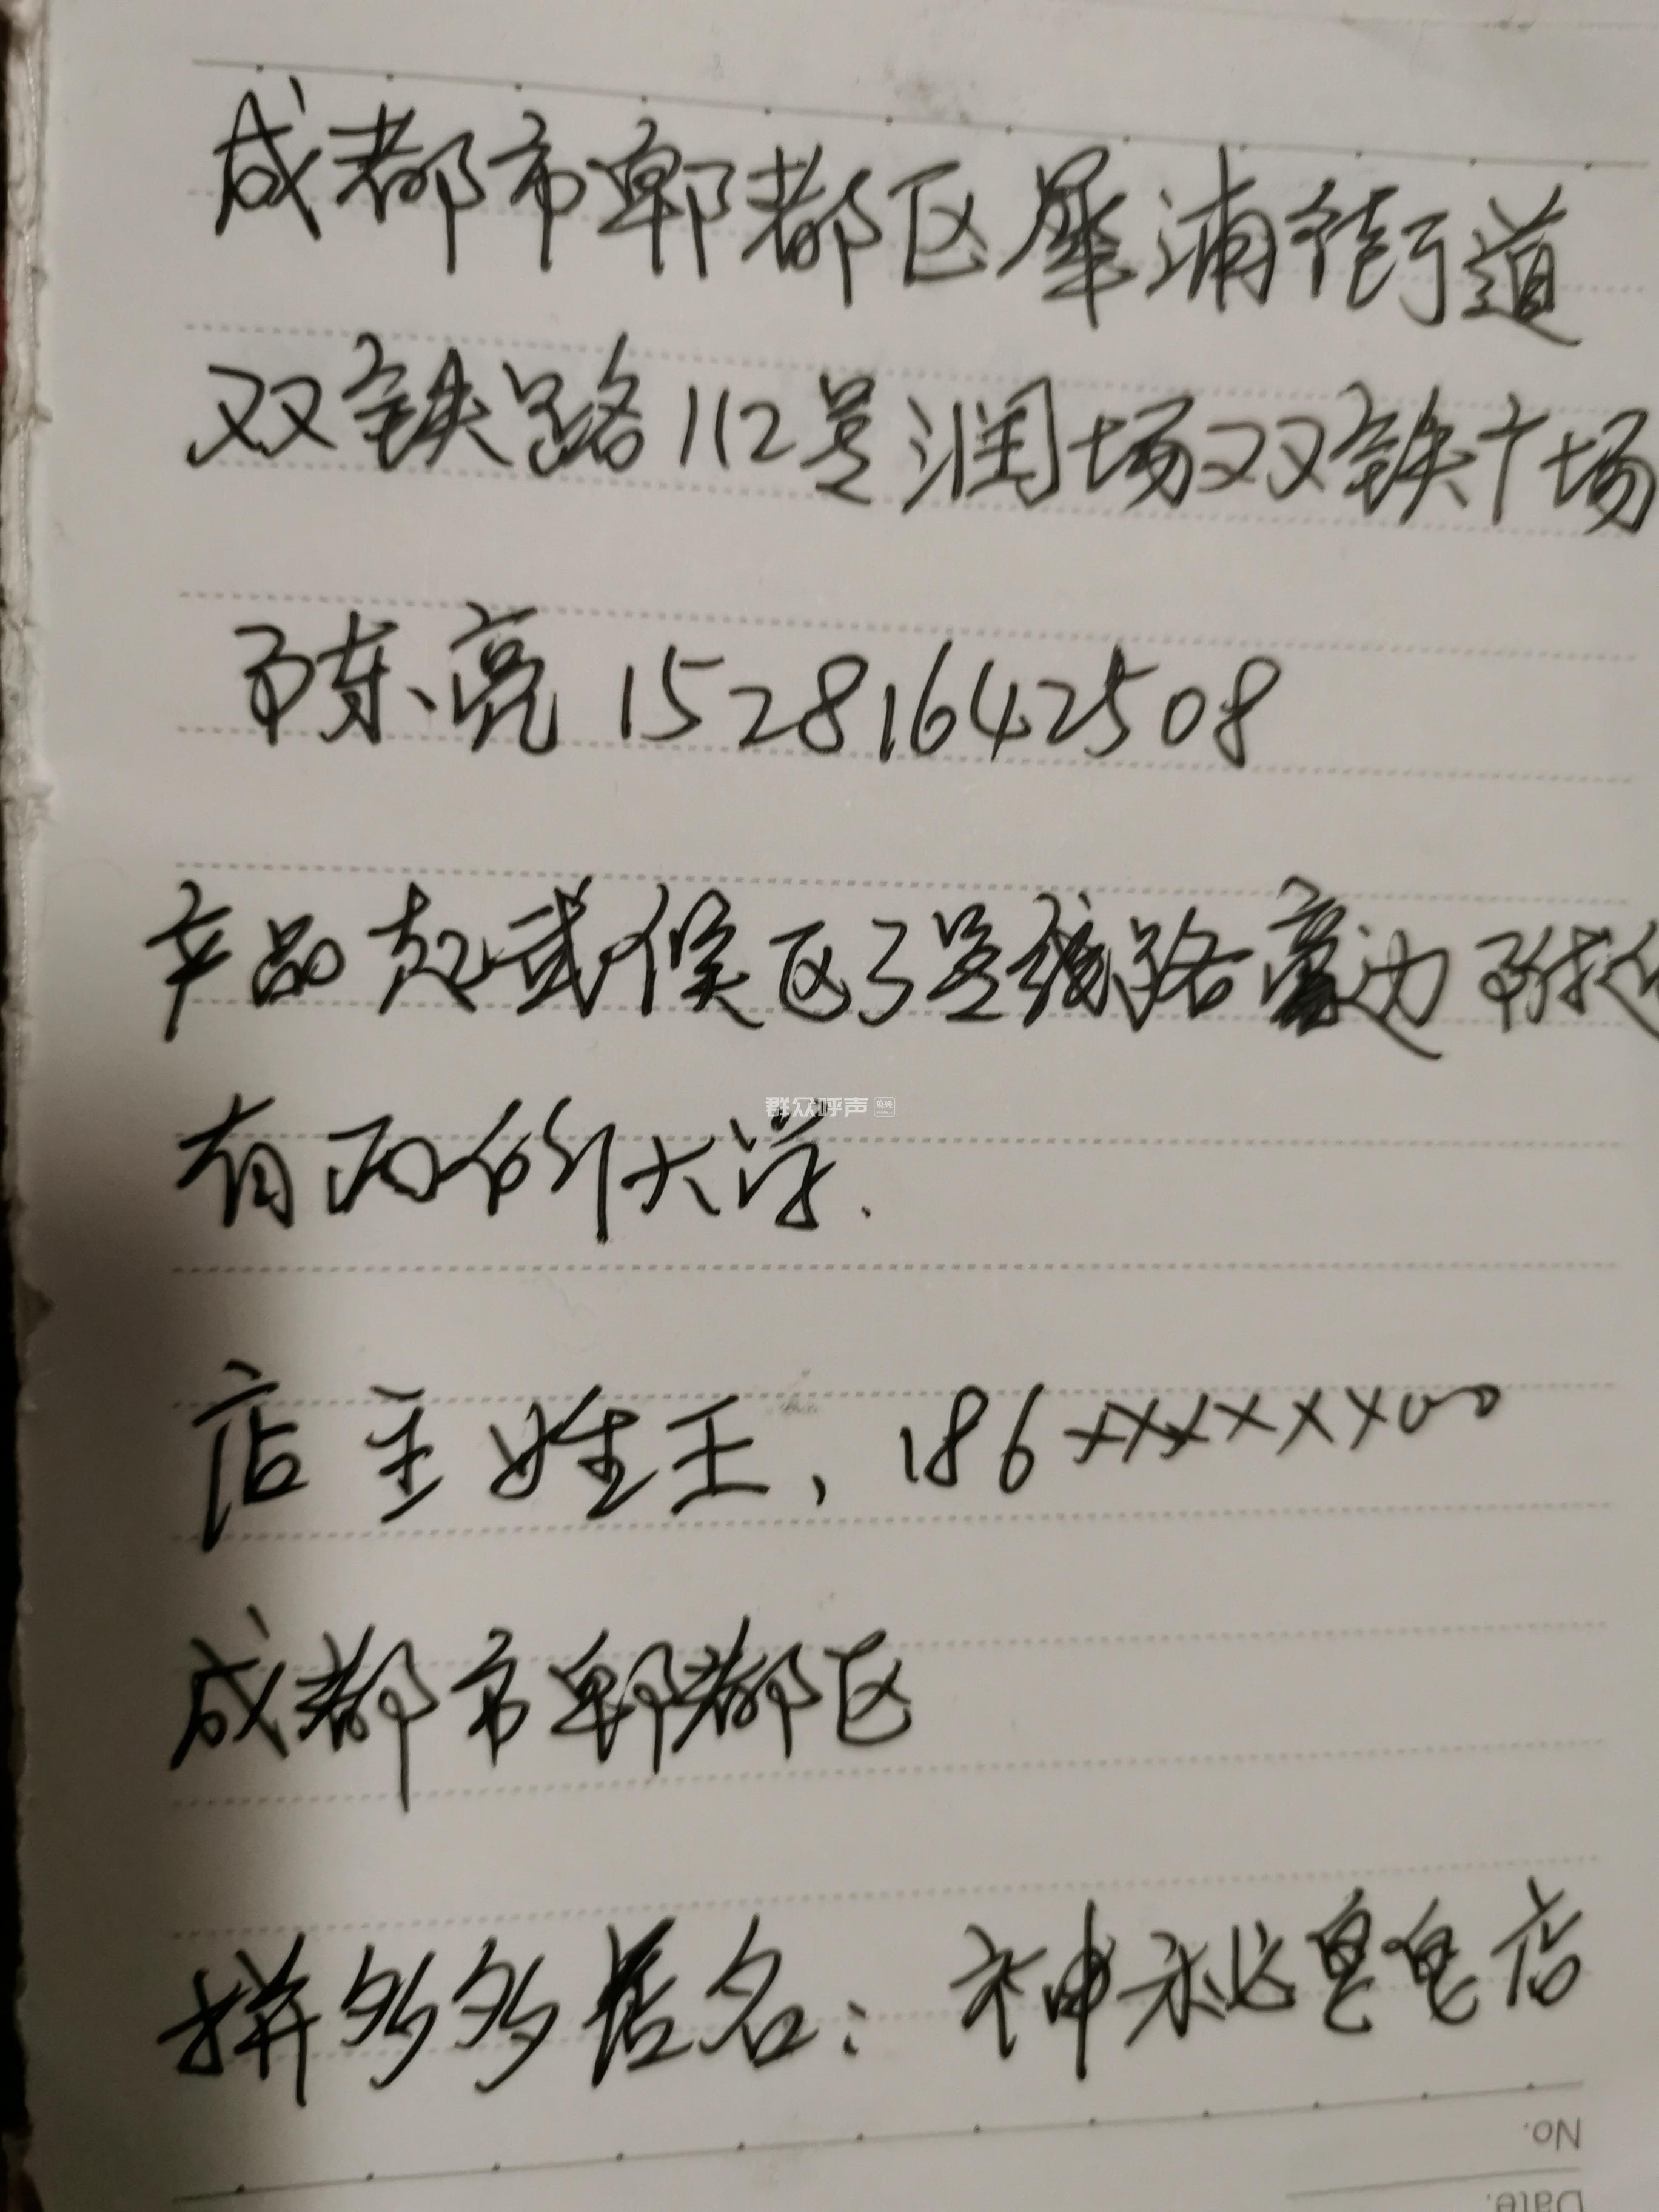 成都市郫都区犀浦街道
双铁路112号润场双铁广场
陈亮 15281642508
产品在武侯区3号线路旁边附近
有两所大学.
群众呼声
店主姓王、186××××××00
成都市郫都区
拼多多店名:神秘皂皂店
No.
Date.